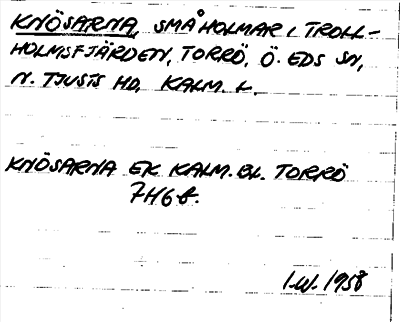 KNÖSARNA, SMÅ HOLMAR I TROLL-
HOLMSFJÄRDEN, TORRÖ, Ö. EDS SN,
N. TJUSTS HD, KALM. L.
KNÖSARNA EK KALM. BL. TORRÖ
7H6f.
I.W. 1958